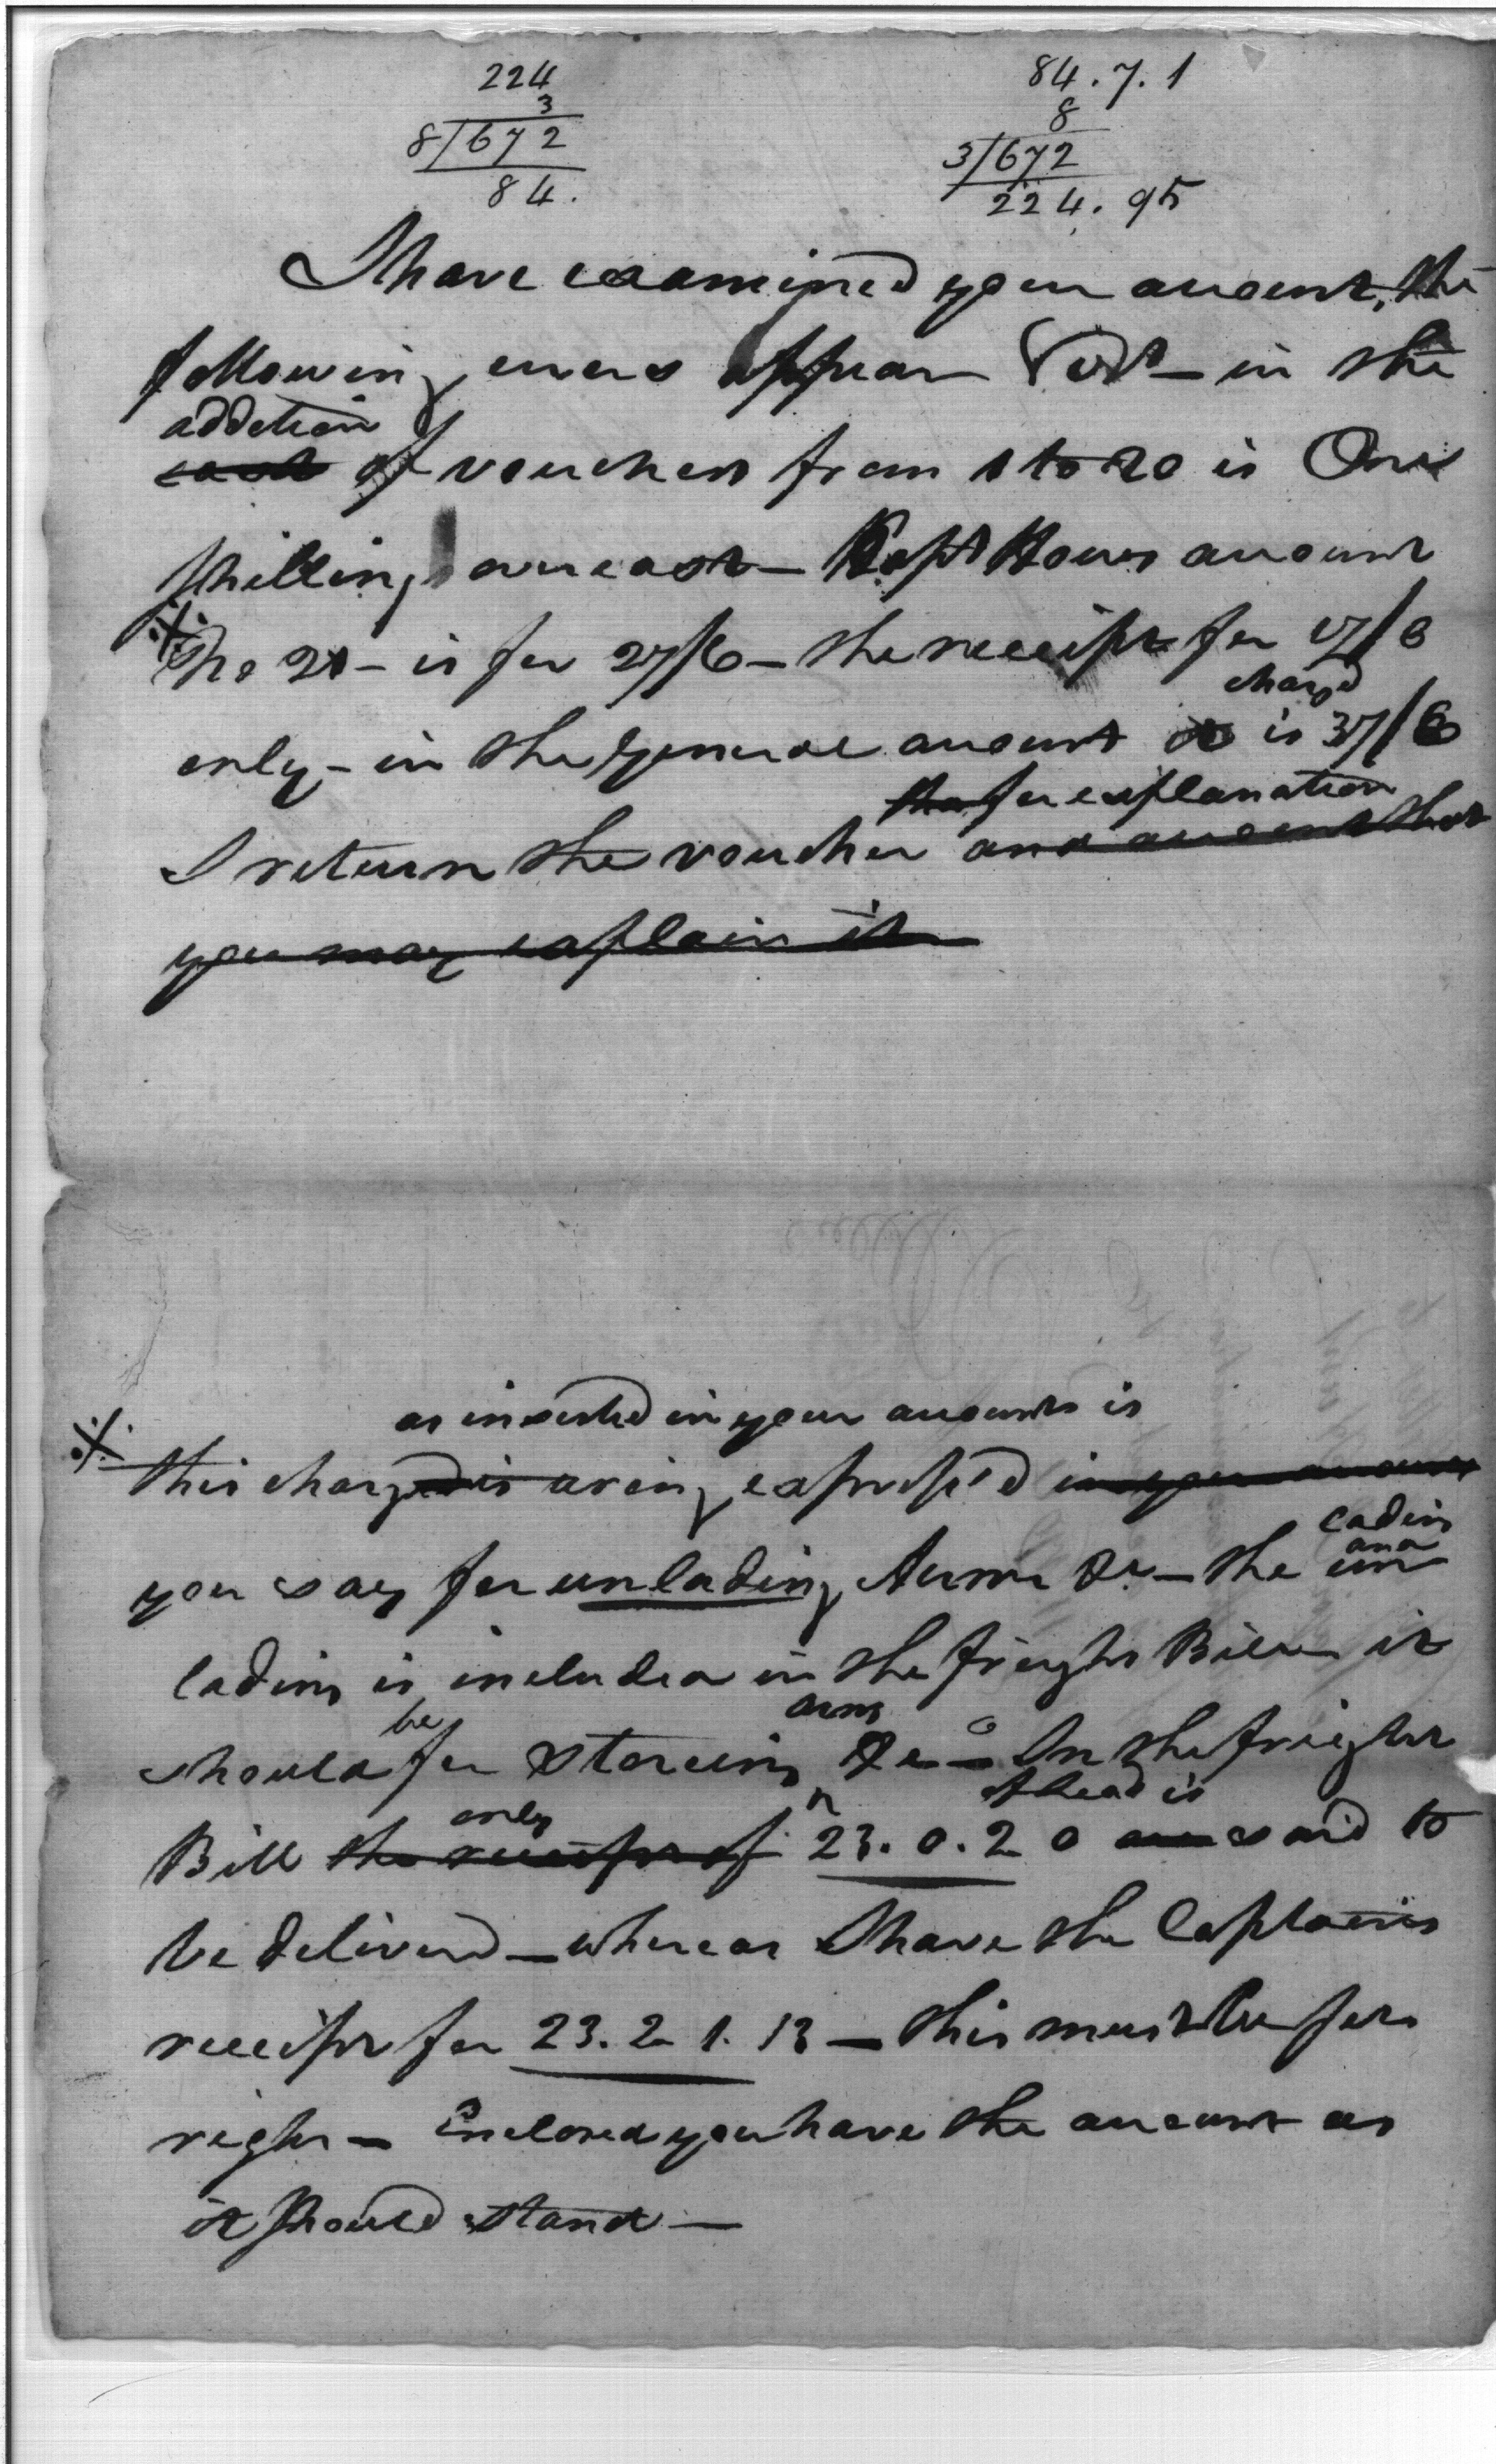 224
3
8/672
84.
84.7.1
8
3/672
224.95
I have examined your account, the
following errors appear Viz - in the
addition
of vouchers from 1 to 20 is One
shilling overcast - Capt Hours account
·/· No 21 - is for 27/6 - the receipt for 17/6
charg'd
only - in the general account is 37/6
for explanation
I return the voucher and account that
you may explain it
as inserted in your accounts is
·/· this charge is wrong express'd in your account
lading
and
you say for unlading Arms &c - the un
lading is included in the freight Bill it
be arms
should for Storeing &c - In the freight
only n of lead is
Bill the receipt of 23.0.2 0 are said to
be deliverd - whereas I have the Captains
receipt for 23.2 1.13 - this must be sett
right - Enclosed you have the account as
it should stand -